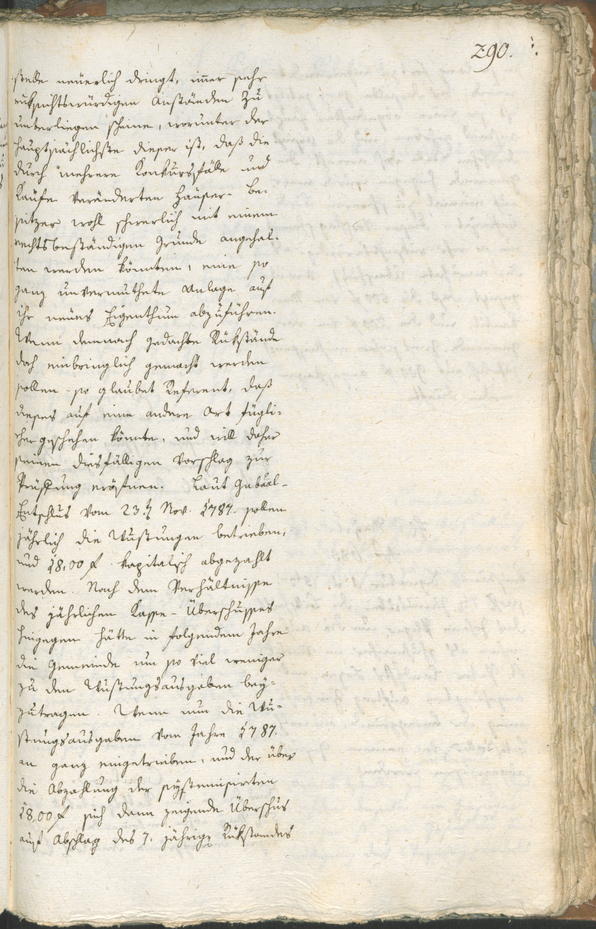 290.
stede neuerlich dringt, immer sehr
rüksichtswürdigen Anständen zu
unterliegen scheine, worunter der
hauptsächlichste dieser ist, daß die
durch mehrere Konkursfälle und
Käufe veränderten Häuser- be-
sitzer wohl schwerlich mit einem
rechtsbeständigen Grunde angehal-
ten werden könnten, eine so
ganz unvermuthete Anlage auf
ihr neües Eigenthum abzuführen.
Wenn demnach gedachte Rükstände
doch einbringlich gemacht werden
sollen – so glaubet Referent, daß
dieses auf eine andere Art fügli-
cher geschehen könnte, und will daher
seinen diesfälligen Vorschlag zur
Prüffung eröfnen. Laut Gubial-
Entschlus vom 23.t Nov. 1787. sollen
jährlich die Wustungen betrieben,
und 1800 f kapitalisch abgezahlt
werden. Nach dem Verhältnisse
des jährlichen Kasse-Überschusses
hingegen hätte in folgendem Jahre
die Gemeinde um so viel weniger
zu den Wustungsausgaben bey-
zutragen. Wenn nun die Wu-
stungsausgaben vom Jahre 1787.
an ganz eingetrieben, und der über
die Abzahlung der sistemisirten
1800 f sich dann zeigende Überschus
auf Abschlag des 7. jährigen Rükstandes